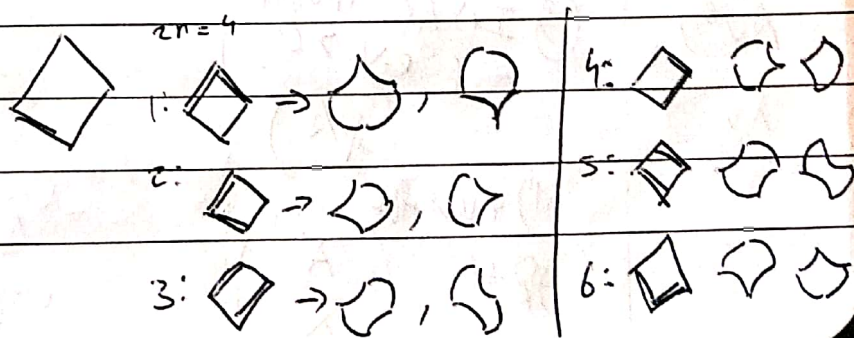 2n = 4
1: → ,
2: → ,
3: → ,
4:
5:
6: